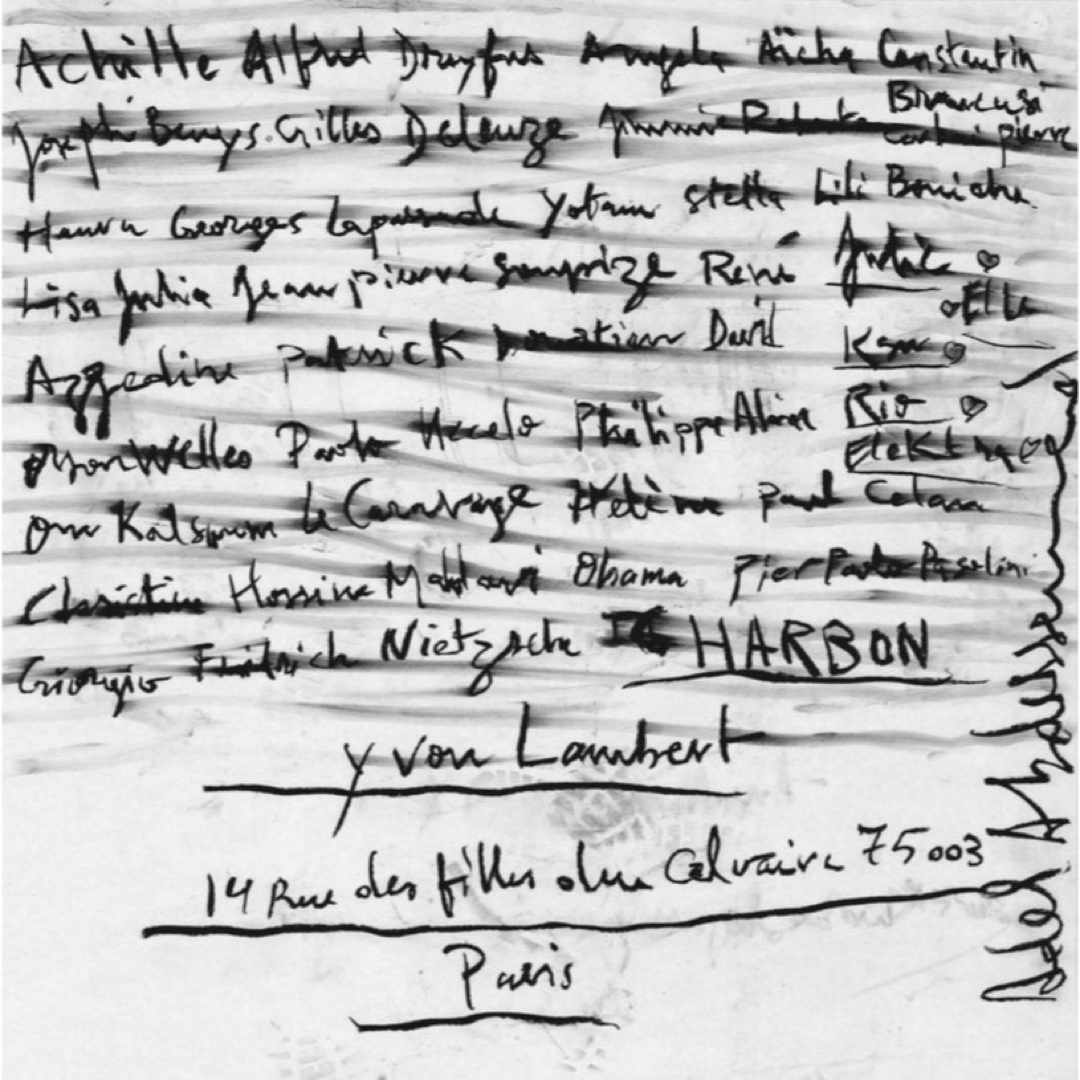 Achille Alfred Dreyfus Angela Aïcha Constantin
Brancusi
Joseph Beuys. Gilles Deleuze Jimmie pierre
Georges Lapassade Yotam stella Lili Boniche
Lisa Julia Jean pierre surprize René Julie
Elle
Azzedine patrick David
Orson Welles Paolo Uccelo Philippe Rio
Elektra
Oum Kalsoum le Caravage Hélène paul Celan
Christine Hossine Obama Pier Paolo Pasolini
Giorgio Friedrich Nietzsche HARBON
yvon Lambert
14 Rue des filles du Calvaire 75003
Paris
Adel Abdessemed